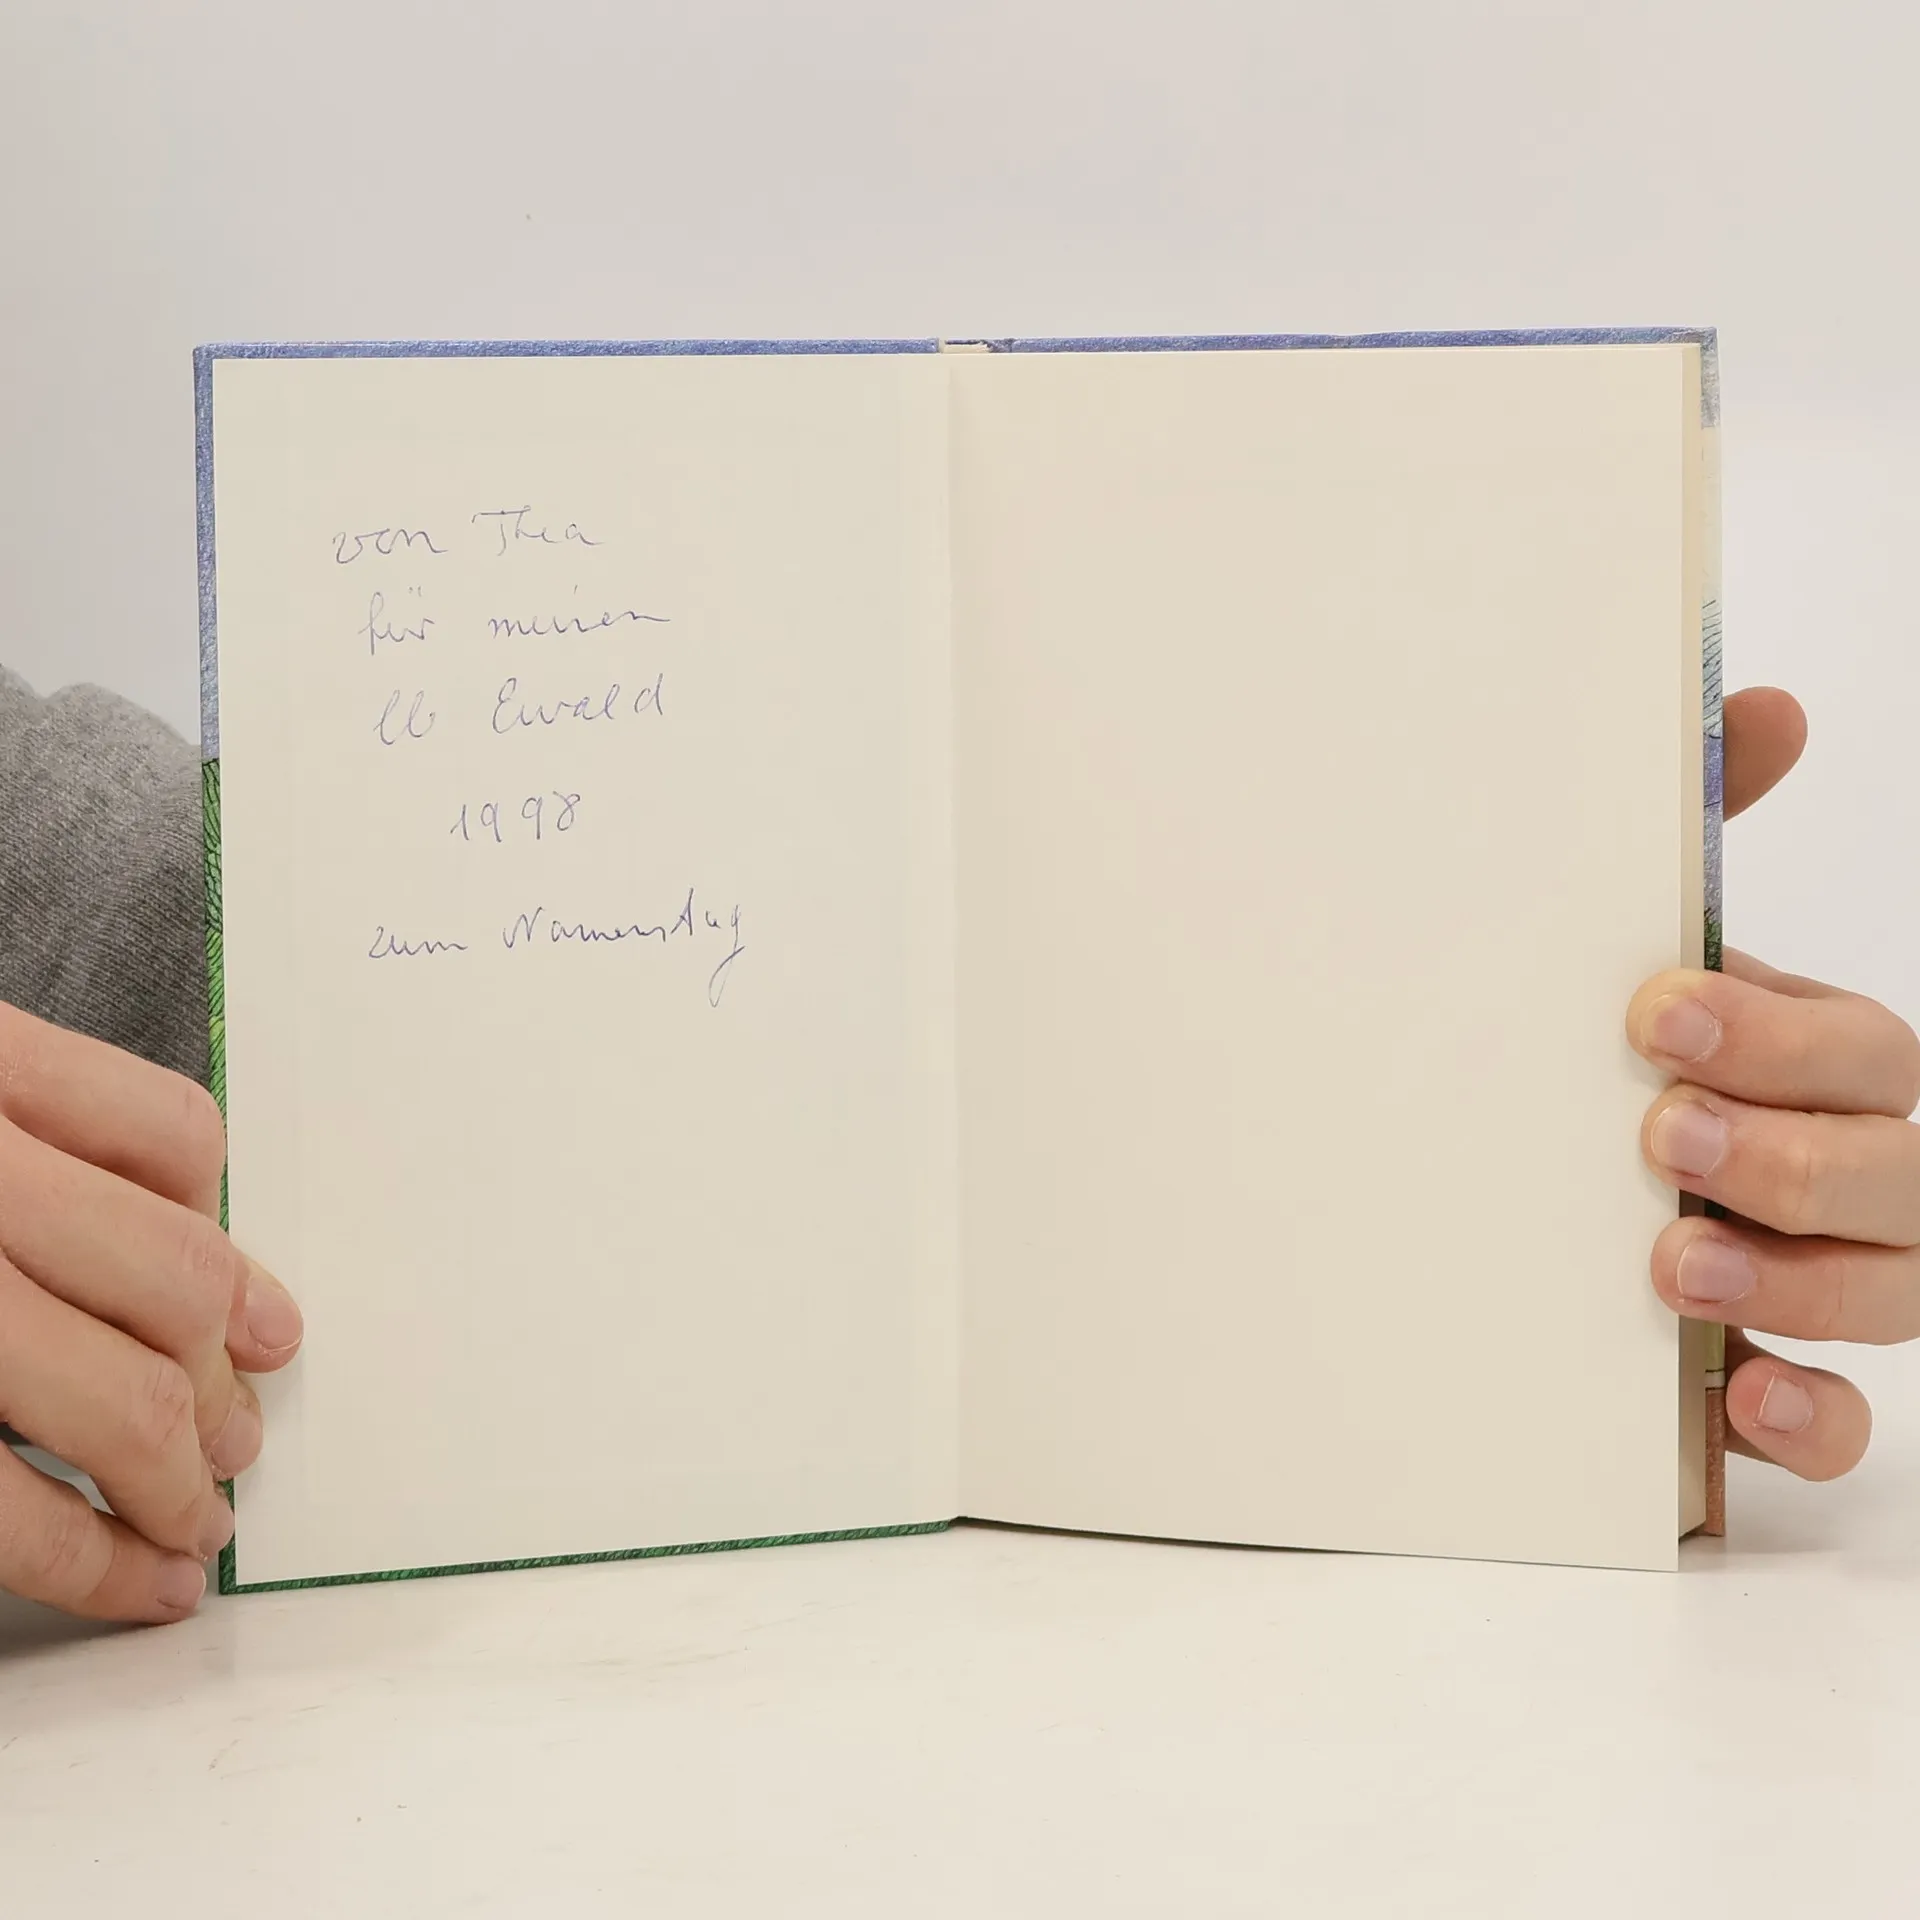 von Thea
für meinen
lb Ewald
1998
zum Namenstag